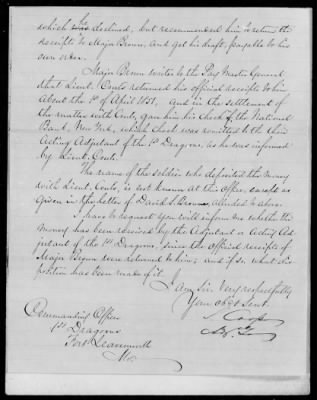 which he declined, but recommended him to return the
receipts to Major Benn, and get his draft, payable to his
own order.
Major Benn writes to the Pay Master General
that Lieut. Couts returned his official receipts to him
about the 1st of April 1851, and in the settlement of
the matter with Couts, gave him his check of the National
Bank, New York, which check was remitted to the then
Acting Adjutant of the 1st Dragoons, as he was informed
by Lieut. Couts.
The name of the soldier who deposited the money
with Lieut. Couts, is not known at this Office, except as
given in the letter of David S. alluded to above.
I have to request you will inform me whether the
money has been received by the Adjutant or Acting Ad-
jutant of the 1st Dragoons, since the official receipts of
Major Benn were returned to him; and if so what dis-
position has been made of it.
I am Sir, Very respectfully
Your Obdt Servt
S. Cooper
Commanding Officer
1st Dragoons
Fort Leavenworth
Mo.